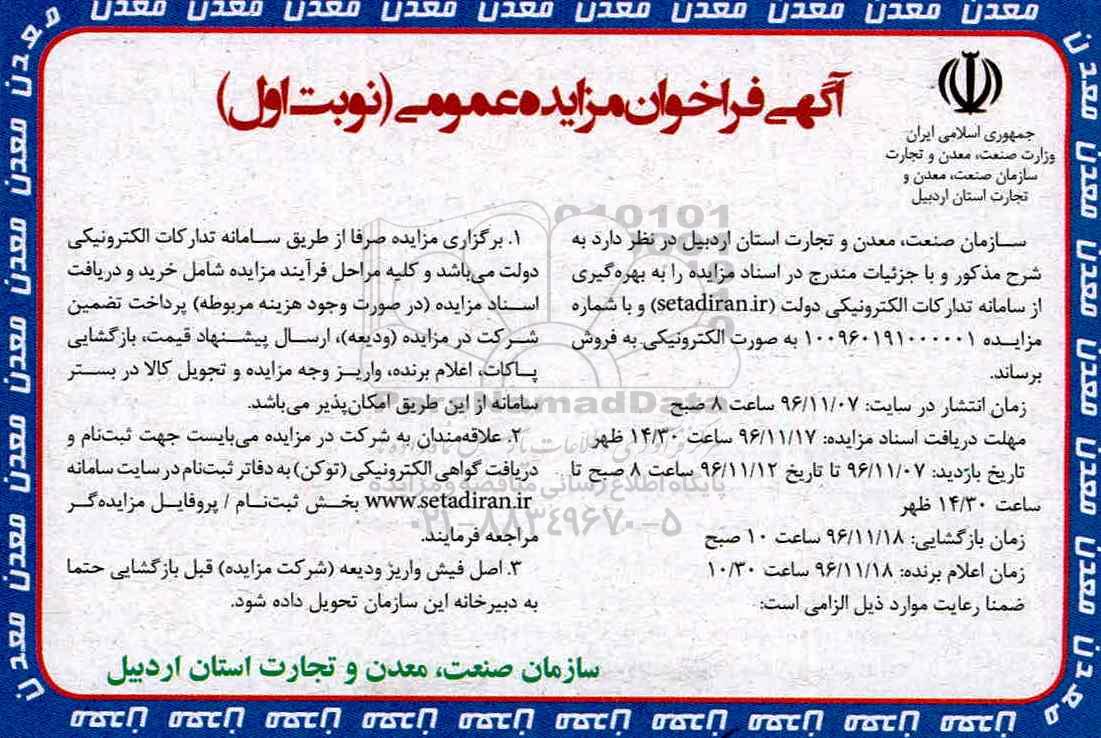 آگهی فراخوان مزایده عمومی (نوبت اول)
جمهوری اسلامی ایران
وزارت صنعت، معدن و تجارت
سازمان صنعت، معدن و
تجارت استان اردبیل
سازمان صنعت، معدن و تجارت استان اردبیل در نظر دارد به
شرح مذکور و با جزئیات مندرج در اسناد مزایده را به بهره‌گیری
از سامانه تدارکات الکترونیکی دولت (setadiran.ir) و با شماره
مزایده ۱۰۰۹۶۰۱۹۱۰۰۰۰۰۱ به صورت الکترونیکی به فروش
برساند.
زمان انتشار در سایت: ۹۶/۱۱/۰۷ ساعت ۸ صبح
مهلت دریافت اسناد مزایده: ۹۶/۱۱/۱۷ ساعت ۱۴/۳۰ ظهر
تاریخ بازدید: ۹۶/۱۱/۰۷ تا تاریخ ۹۶/۱۱/۱۲ ساعت ۸ صبح تا
ساعت ۱۴/۳۰ ظهر
زمان بازگشایی: ۹۶/۱۱/۱۸ ساعت ۱۰ صبح
زمان اعلام برنده: ۹۶/۱۱/۱۸ ساعت ۱۰/۳۰
ضمنا رعایت موارد ذیل الزامی است:
۱. برگزاری مزایده صرفا از طریق سامانه تدارکات الکترونیکی
دولت می‌باشد و کلیه مراحل فرآیند مزایده شامل خرید و دریافت
اسناد مزایده (در صورت وجود هزینه مربوطه) پرداخت تضمین
شرکت در مزایده (ودیعه)، ارسال پیشنهاد قیمت، بازگشایی
پاکات، اعلام برنده، واریز وجه مزایده و تحویل کالا در بستر
سامانه از این طریق امکان‌پذیر می‌باشد.
۲. علاقه‌مندان به شرکت در مزایده می‌بایست جهت ثبت‌نام و
دریافت گواهی الکترونیکی (توکن) به دفاتر ثبت‌نام در سایت سامانه
www.setadiran.ir بخش ثبت‌نام / پروفایل مزایده‌گر
مراجعه فرمایند.
۳. اصل فیش واریز ودیعه (شرکت مزایده) قبل بازگشایی حتما
به دبیرخانه این سازمان تحویل داده شود.
سازمان صنعت، معدن و تجارت استان اردبیل
ParsNamadData
پایگاه اطلاع رسانی مناقصه و مزایده
۰۲۱-۸۸۳۴۹۶۷۰-۵